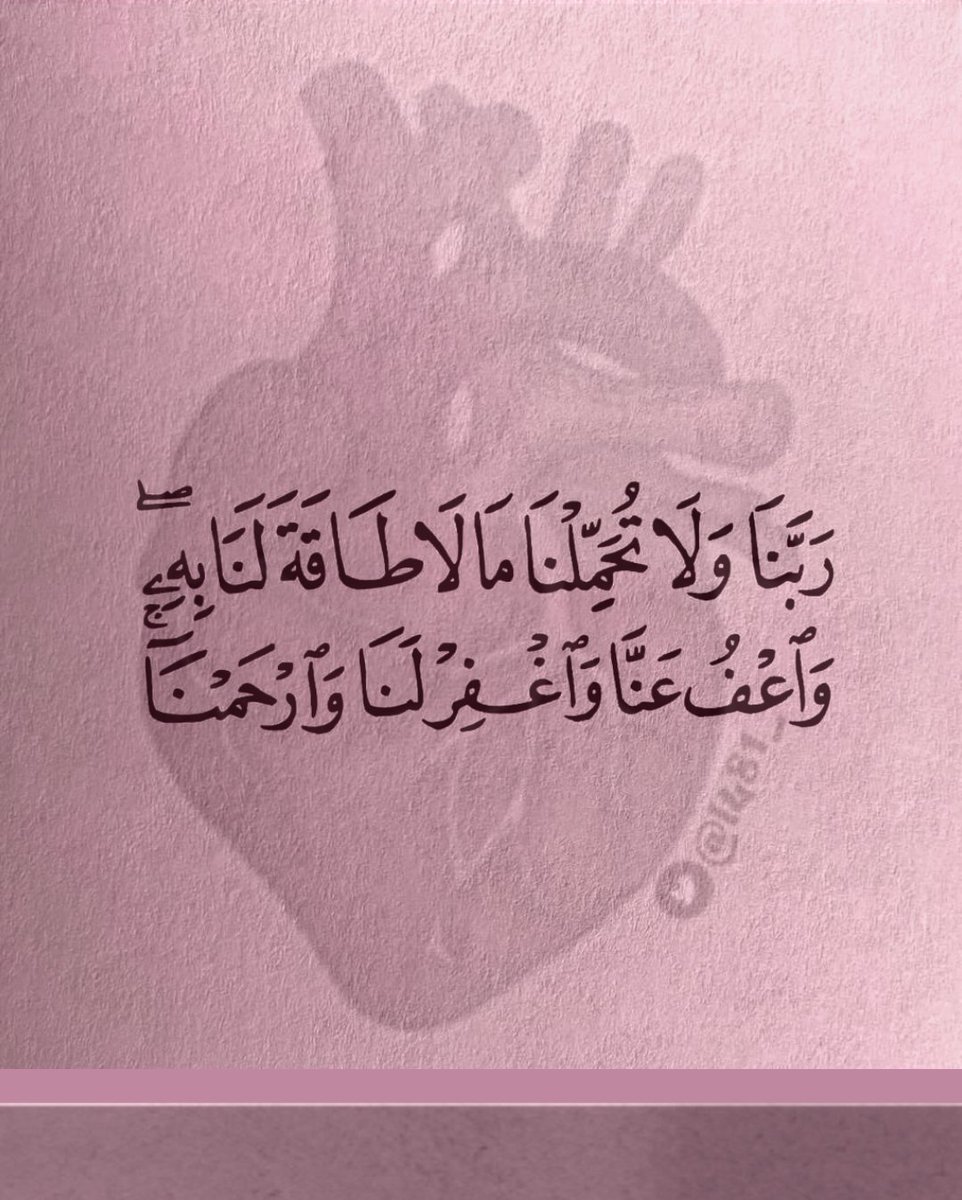 رَبَّنَا وَلَا تُحَمِّلْنَا مَا لَا طَاقَةَ لَنَا بِهِۦ ۖ
وَٱعْفُ عَنَّا وَٱغْفِرْ لَنَا وَٱرْحَمْنَآ ۚ